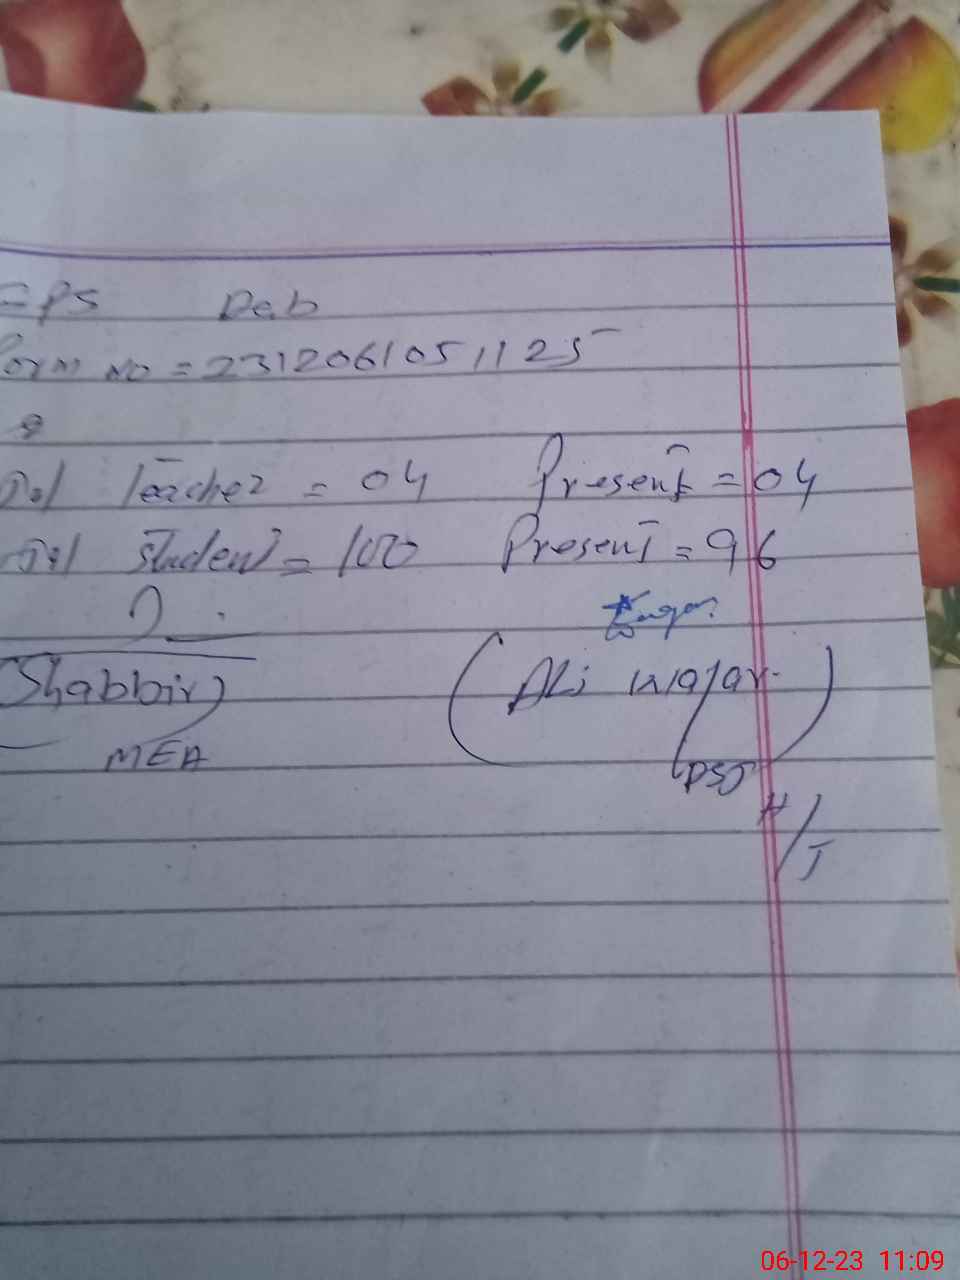 GPS Dab
Form No = 2312061051125
Tol Teacher = 04 Present = 04
Tol Student = 100 Present = 96
(Shabbir) (Ali
MEA
PST
H/T
06-12-23 11:09